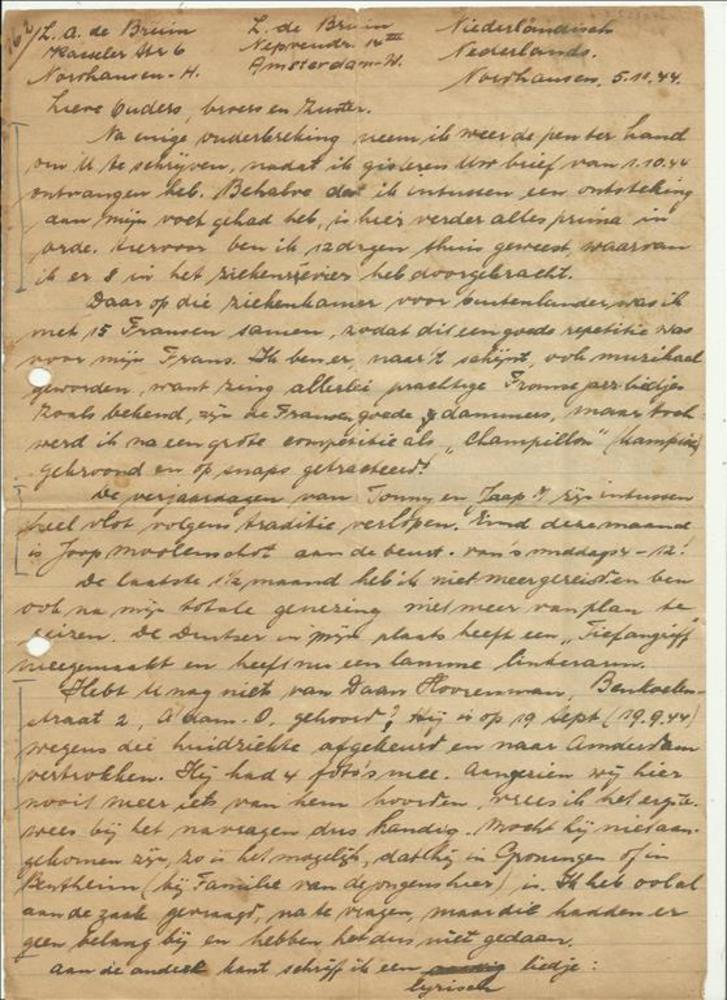 L. A. de Bruin    Z. de Bruin    Niederländisch
Kasseler Str 6    Nepveustr. III    Nederlands.
Nordhausen-H.    Amsterdam-W.    Nordhausen, 5.11.44.
Lieve Ouders, broers en Zuster.
Na enige onderbreking neem ik weer de pen ter hand
om U te schrijven, nadat ik gisteren Uw brief van 1.10.44
ontvangen heb. Behalve dat ik intussen een ontsteking
aan mijn voet gehad heb, is hier verder alles prima in
orde. Hiervoor ben ik 12 dagen thuis geweest, waarvan
ik er 8 in het ziekenrevier heb doorgebracht.
Daar op die ziekenkamer voor buitenlander was ik
met 15 Fransen samen, zodat dit een goede repetitie was
voor mijn Frans. Ik ben er, naar 't schijnt, ook muzikaal
geworden, want zing allerlei prachtige Franse jazz-liedjes
Zoals bekend, zijn de Fransen goede dammers, maar toch
werd ik na een grote competitie als „Champillon" (kampioen)
gekroond en op snaps getracteerd!
De verjaardagen van Tonny en Jaap zijn intussen
heel vlot volgens traditie verlopen. Eind deze maand
is Joop Moolenschot aan de beurt. van 's middags 4-12!
De laatste 1½ maand heb ik niet meer gereisd en ben
ook na mijn totale genezing niet meer van plan te
reizen. De Duitser in mijn plaats heeft een „Tiefangriff"
meegemaakt en heeft nu een lamme linkerarm.
Hebt U nog niet van Daan Hoorenman, Benkoelen-
straat 2, A'dam-O. gehoord? Hij is op 19 Sept (19.9.44)
wegens die huidziekte afgekeurd en naar Amsterdam
vertrokken. Hij had 4 foto's mee. Aangezien wij hier
nooit meer iets van hem hoorden, vrees ik het ergste.
wees bij het navragen dus handig. Mocht hij niet aan-
gekomen zijn, zo is het mogelijk, dat hij in Groningen of in
Bentheim (bij Familie van de jongens hier) is. Ik heb ook al
aan de zaak gevraagd, na te vragen, maar die hadden er
geen belang bij en hebben het dus niet gedaan.
Aan de andere kant schrijf ik een liedje:
lyrisch